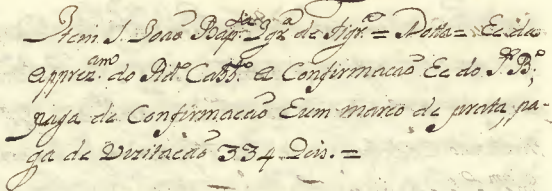 Item S. João Bapt.ta Igr.a de Aigr.o = Notta = Ec da
Aprez.am do Rd.o Cabb.o a Confirmacaõ Ec do S.r B.o;
paga de Confirmacaõ Eum marco de prata, pa-
ga de Vizitacaõ 334 Reis. =